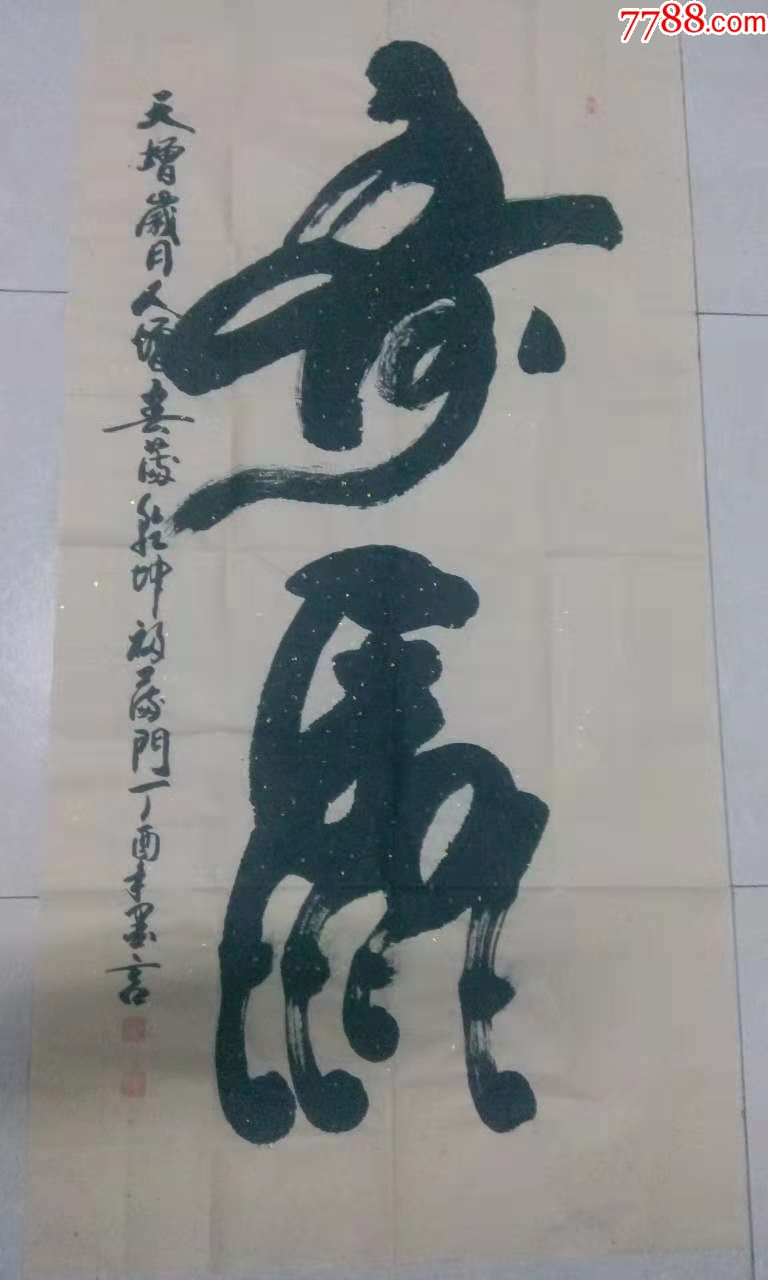 7788.com
寿
天增歲月人增春滿乾坤福滿門丁酉年墨言